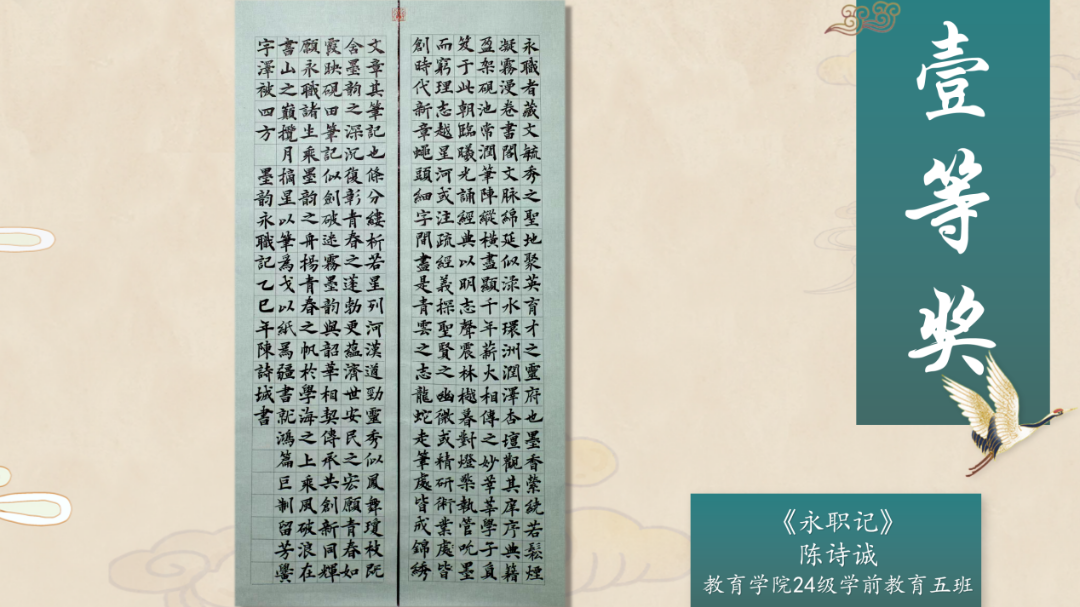 永職者藏文毓秀之聖地聚英育才之靈府也墨香縈繞若鬆煙
凝霧漫卷書閣文脉綿延似渌水環洲潤澤杏壇觀其庠序典籍
盈架硯池常潤筆陣縱橫盡顯千年薪火相傳之妙莘莘學子負
笈于此朝臨曦光誦經典以明志聲震林樾暮對燈檠執管吮墨
而窮理志越星河或注疏經義探聖賢之幽微或精研術業處皆
創時代新章蠅頭細字間盡是青雲之志龍蛇走筆處皆成錦綉
文章其筆記也條分縷析若星列河漢遒勁靈秀似鳳舞瓊枝既
含墨韵之深沉復彰青春之蓬勃更蘊濟世安民之宏願青春如
霞映硯田筆記似劍破迷霧墨韵與韶華相契傳承共創新同輝
願永職諸生乘墨韵之舟揚青春之帆於學海之上乘風破浪在
書山之巔攬月摘星以筆爲戈以紙爲疆書就鴻篇巨制留芳黌
字澤被四方 墨韵永職記乙巳年陳詩城書
壹等奖
《永职记》
陈诗诚
教育学院24级学前教育五班